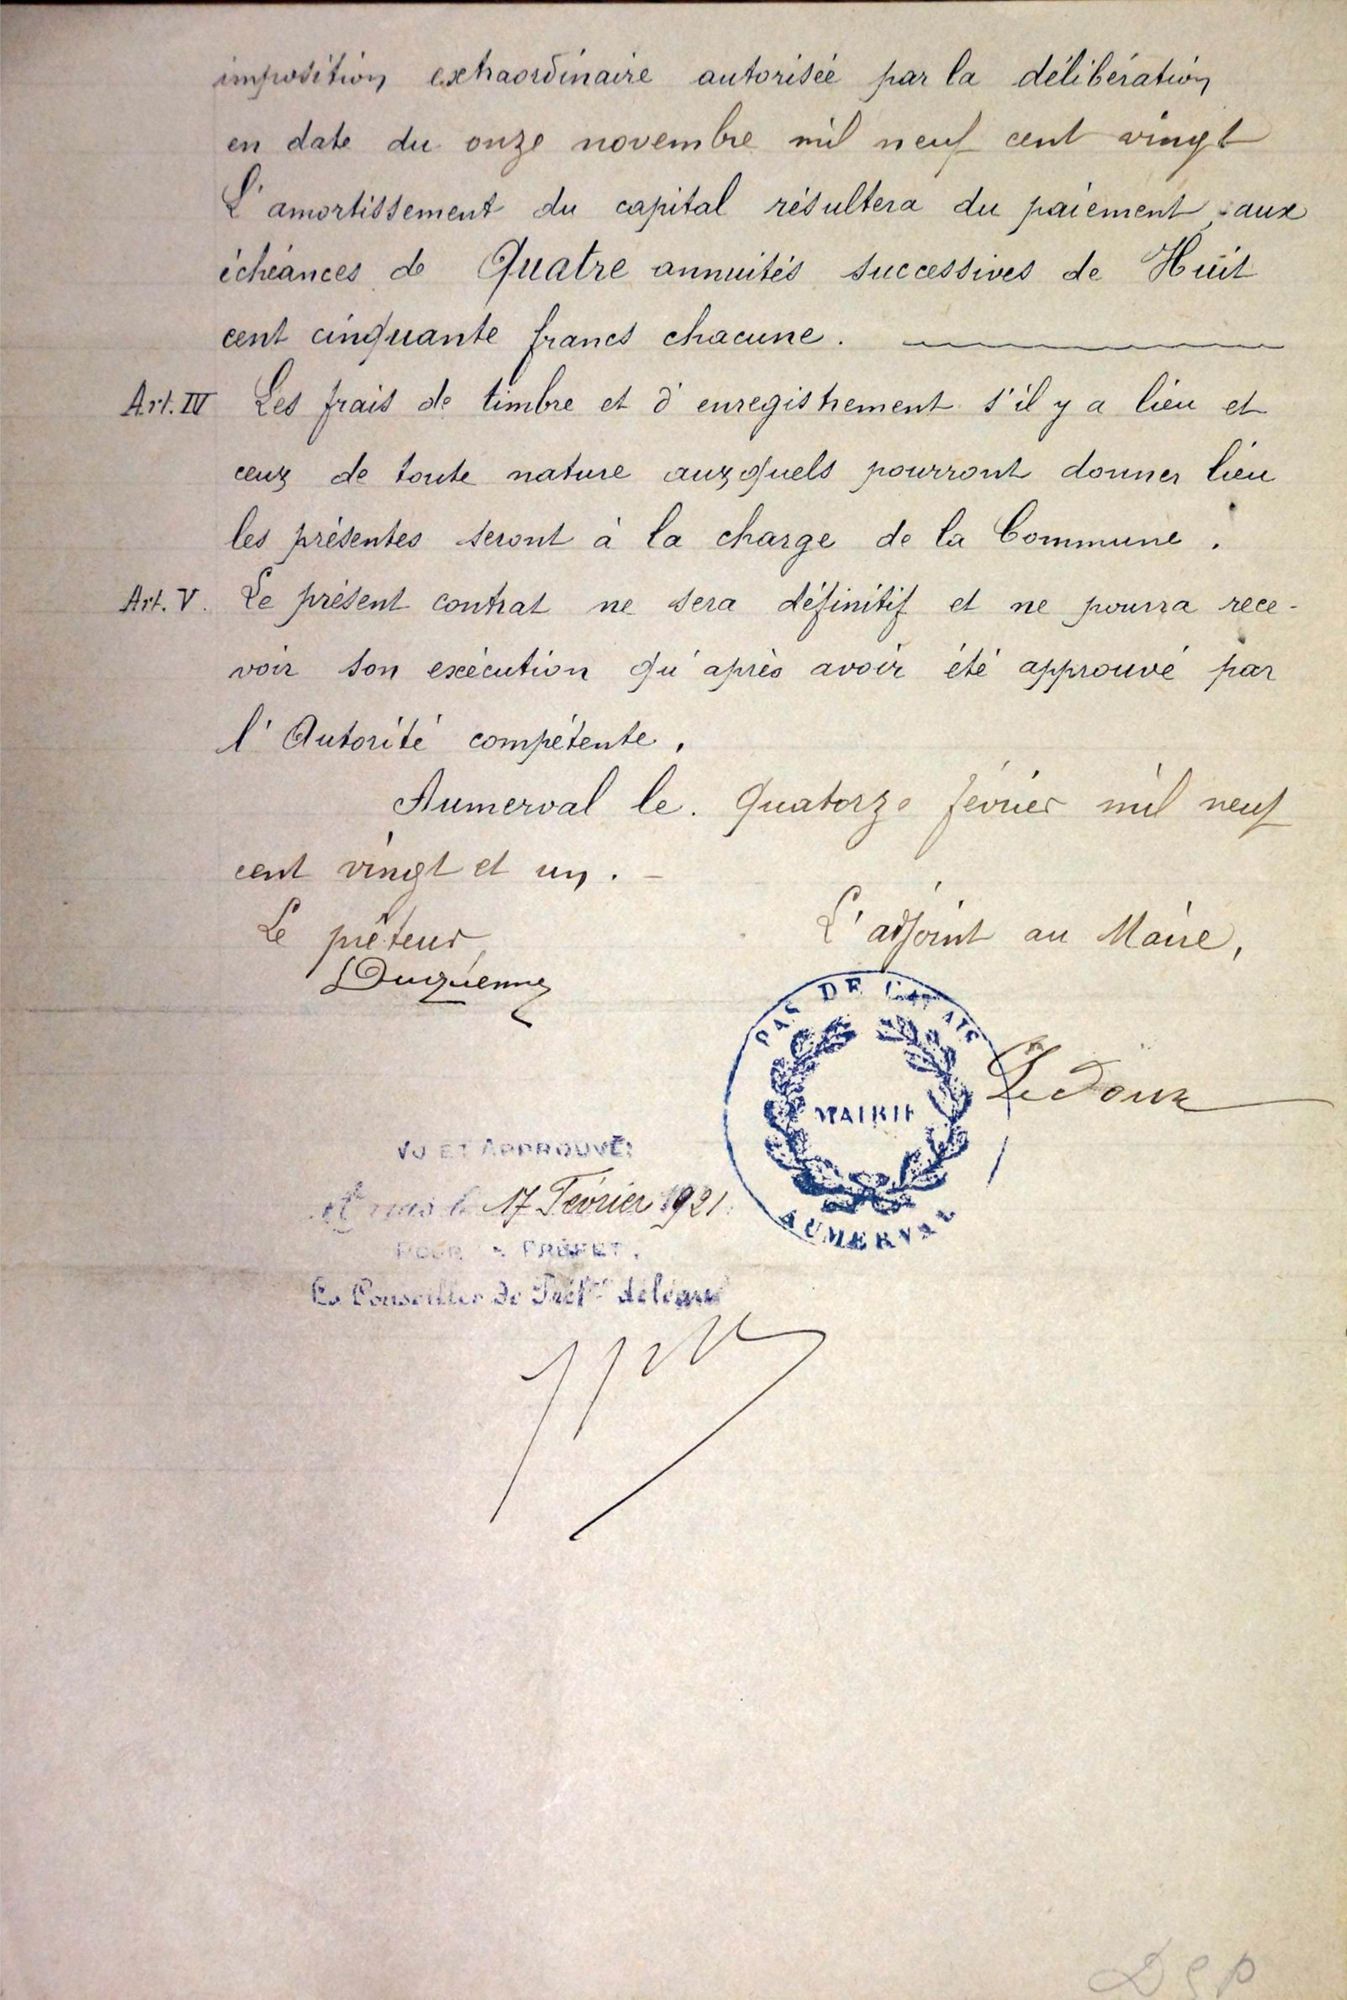 imposition extraordinaire autorisée par la délibération
en date du onze novembre mil neuf cent vingt
L'amortissement du capital résultera du paiement, aux
échéances de Quatre annuités successives de Huit
cent cinquante francs chacune.
Art. IV Les frais de timbre et d'enregistrement s'il y a lieu et
ceux de toute nature auxquels pourront donner lieu
les présentes seront à la charge de la Commune.
Art. V. Le présent contrat ne sera définitif et ne pourra rece-
voir son exécution qu'après avoir été approuvé par
l'Autorité compétente.
Aumerval le quatorze février mil neuf
cent vingt et un. -
Le prêteur, L'adjoint au Maire,
Duquenne
PAS DE CALAIS
Ledoux
MAIRIE
AUMERVAL
VU ET APPROUVÉ:
Arras le 17 Février 1921
POUR LE PRÉFET,
Le Conseiller de Préf.re délégué
DGP